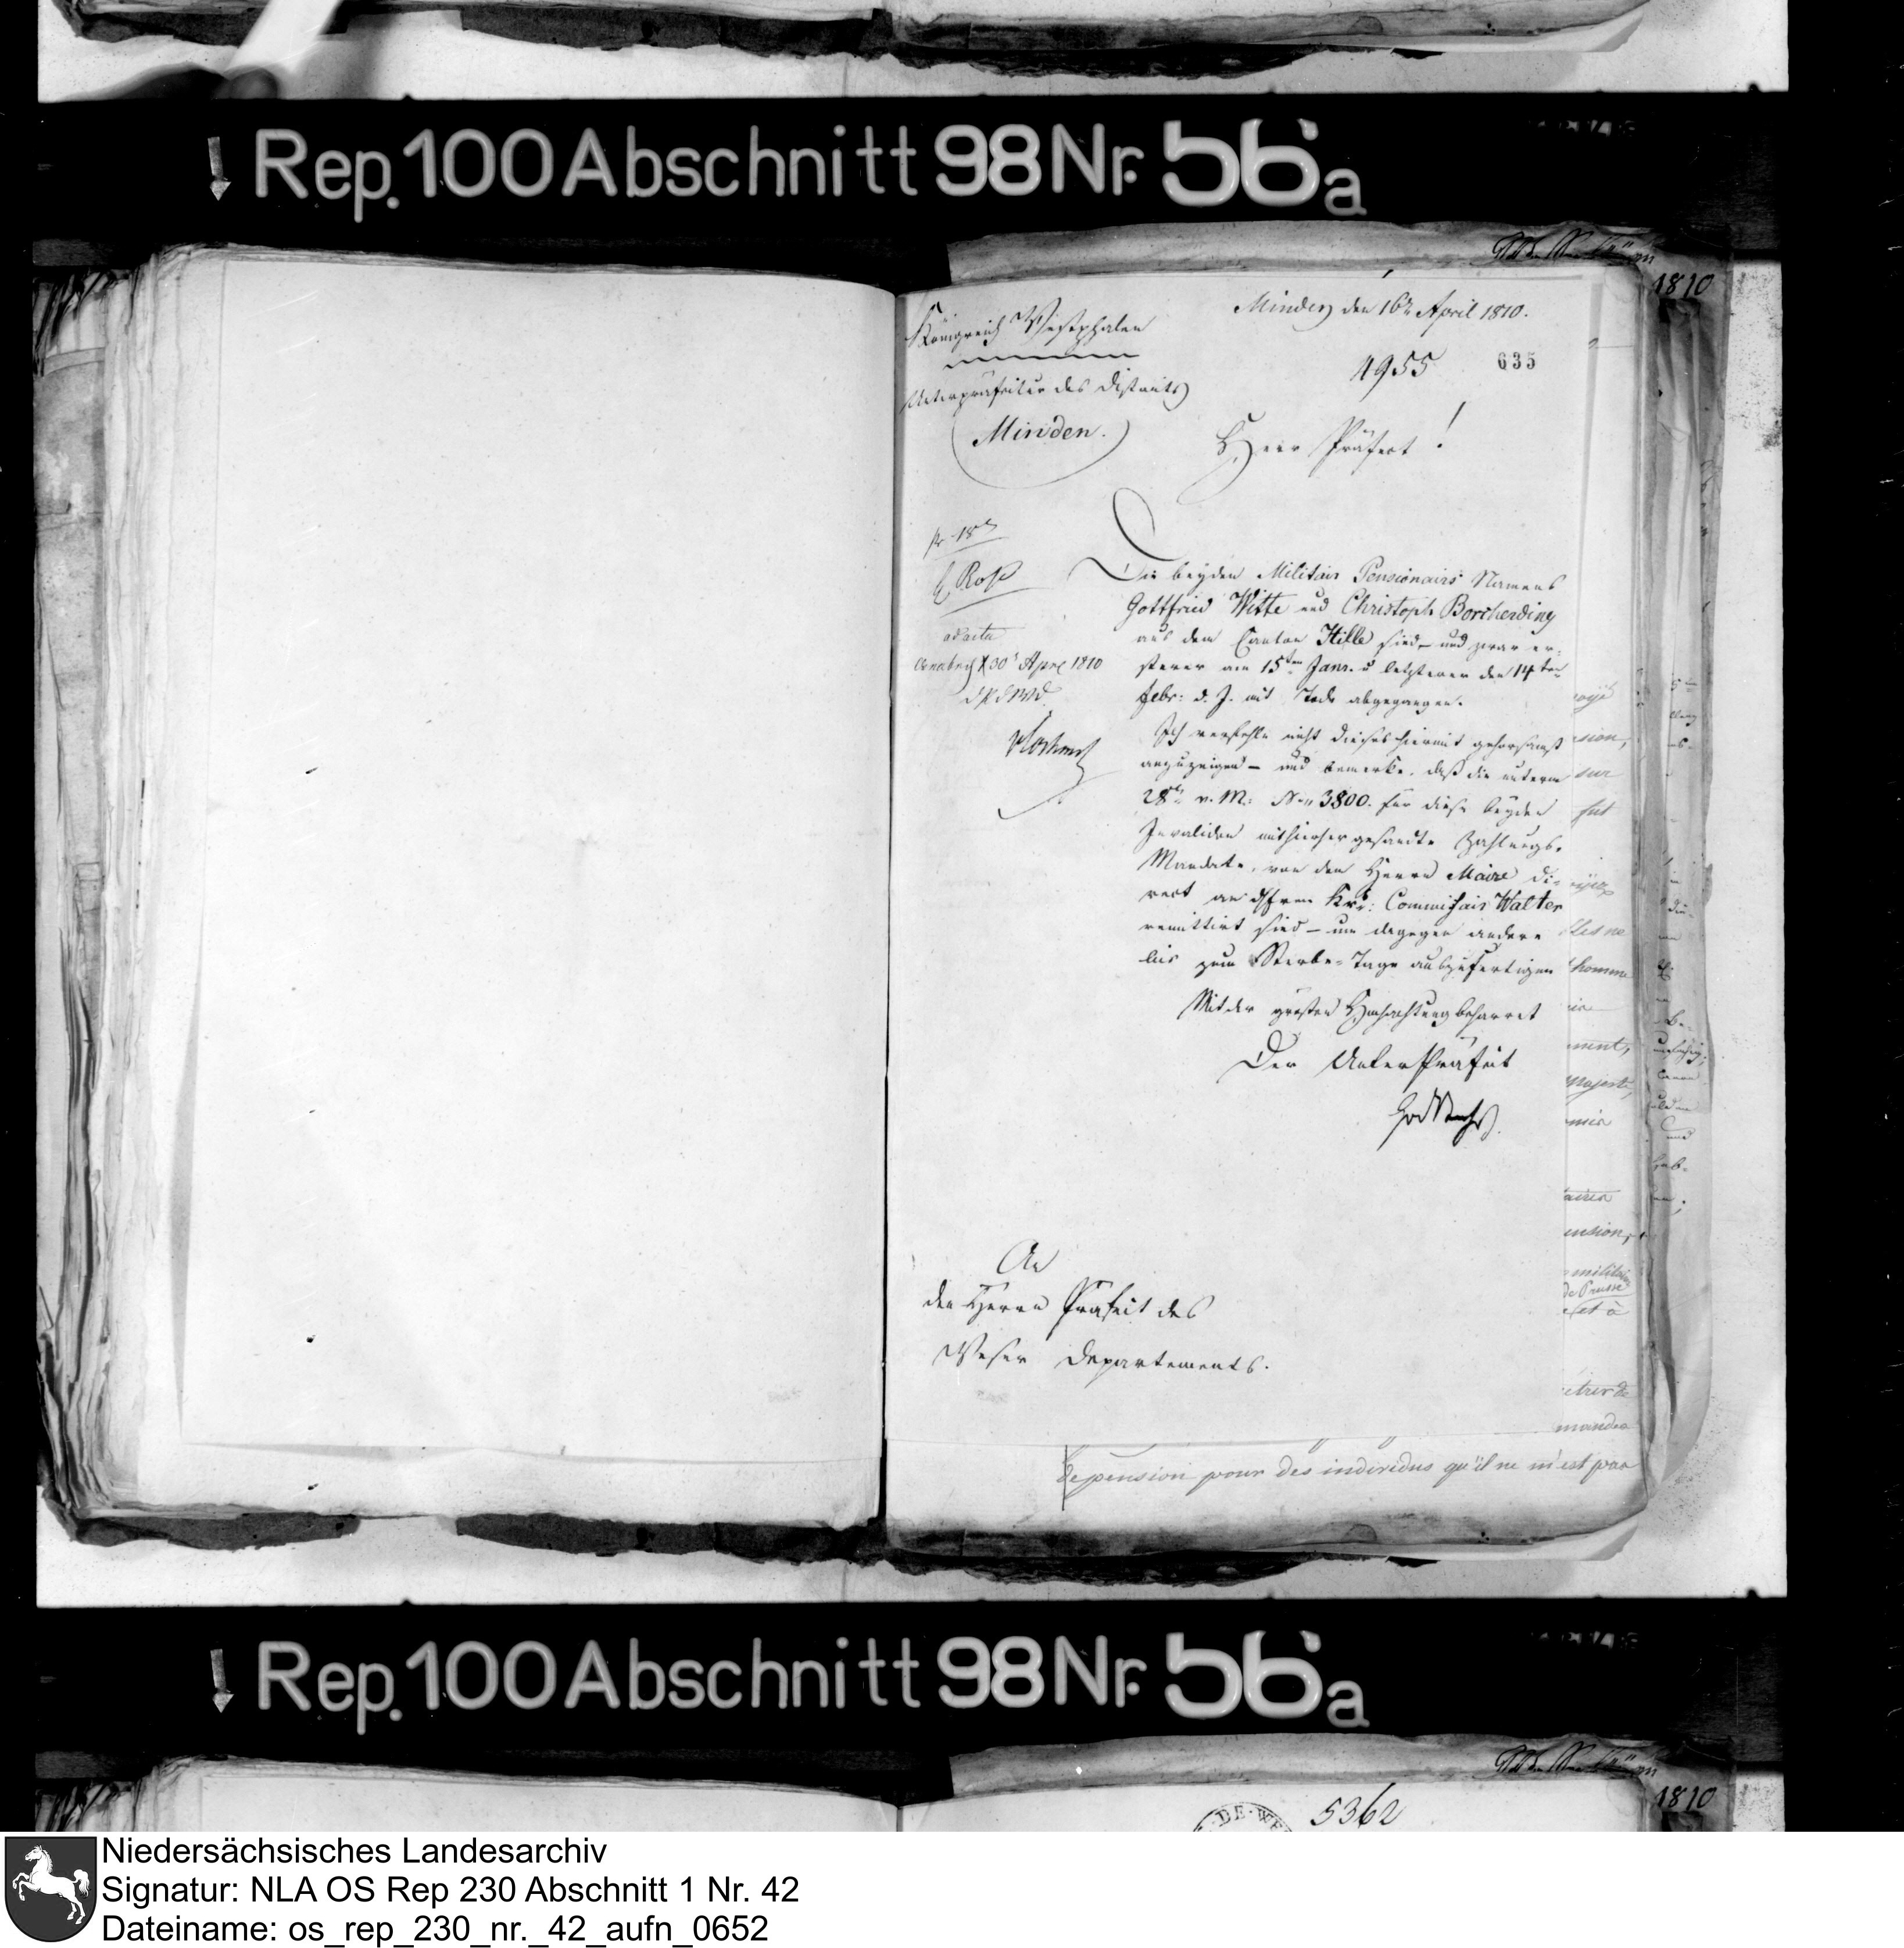 Rep. 100 Abschnitt 98 Nr. 56a
1810
Königreich Westphalen
Unterpräfectur des Districts
Minden.
Minden den 16n April 1810.
4955
635
Herr Präfect!
pr. 18
Roß
ad acta
Osnabrück 30t April 1810
Die beyden Militair Pensionairs Namens
Gottfried Witte und Christoph Borcherding
aus dem Canton Hille sind und zwar er-
sterer am 15ten Janr. u letzterer den 14ten
Febr: d. J. mit Tode abgegangen.
Ich verfehle nicht dieses hiermit gehorsamst
anzuzeigen – und bemerke, daß die unterm
28t v. M. No 3800. für diese beyden
Invaliden mithierher gesandte Zahlungs-
Mandate, von dem Herrn Maire di-
rect an Commissair Walter
remittirt sind – um dagegen andere
bis zum Sterbe-Tage auszufertigen
Mit der grösten Hochachtung beharret
Der Unter Präfect
An
den Herrn Präfect des
Weser Departements.
sion,
sur
homme
ment,
majesté,
ension,
militair
de Prusse
et à
mandes
de pension pour des individus qu'il ne m'est pas
Rep. 100 Abschnitt 98 Nr. 56a
1810
5362
DE WE
Niedersächsisches Landesarchiv
Signatur: NLA OS Rep 230 Abschnitt 1 Nr. 42
Dateiname: os_rep_230_nr._42_aufn_0652